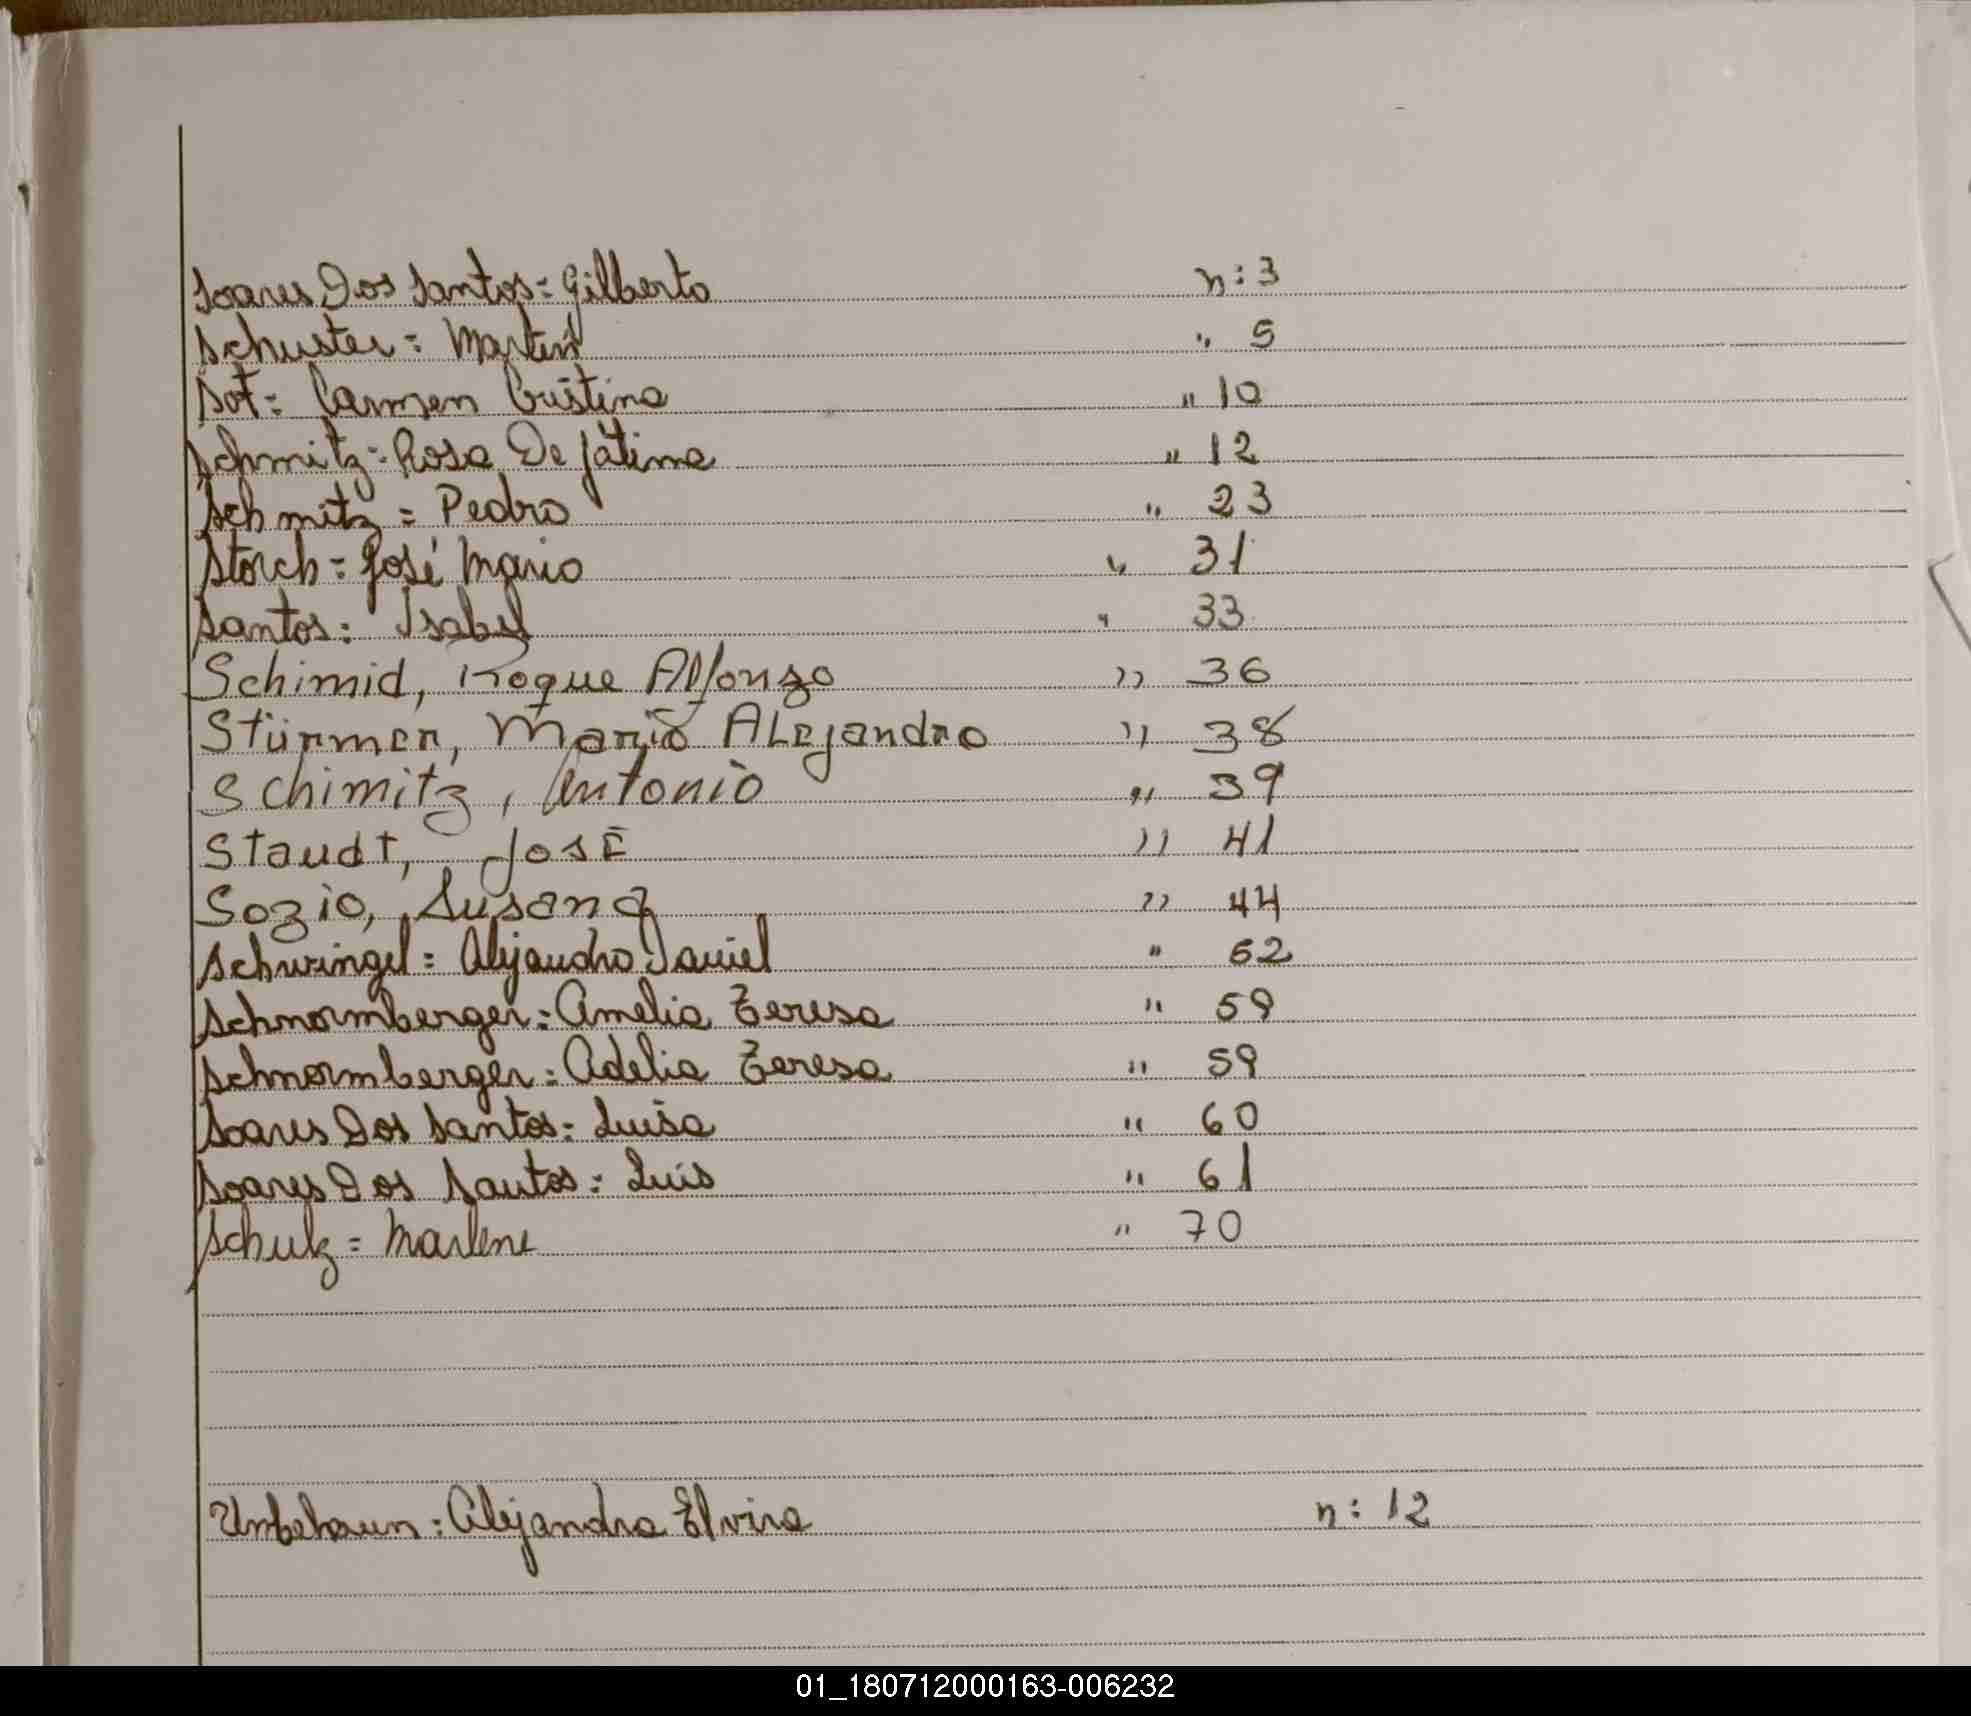 Soares Dos Santos = Gilberto n: 3
Schuster = Martin " 5
Sot = Carmen Cristina " 10
Schmitz = Rosa De Fátima " 12
Schmitz = Pedro " 23
Storch = José Mario " 31
Santos: Isabel " 33
Schimid, Roque Alfonzo " 36
Stürmer, Mario Alejandro " 38
Schimitz, Antonio " 39
Staudt, José " 41
Sozio, Susana " 44
Schwingel = Alejandro Daniel " 52
Schnormberger = Amelia Teresa " 59
Schnormberger = Adelia Teresa " 59
Soares Dos Santos = Luisa " 60
Soares Dos Santos = Luis " 61
Schulz = Marlene " 70
Unbehaun: Alejandra Elvira n: 12
01_180712000163-006232